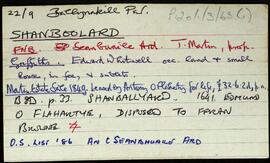 22/9 Ballynakill Par.
P201/3/65(1)
SHANBOOLARD
FNB. Seanbuaile Ard. T. Martin, prop.
Griffith. Edward Whitwell occ. land & small
house, in fee, & entate.
Martin Estate Sale 1849. leased by Anthony O'Flaherty for life, £32.6.2d, p.a.
B&D. p. 23. SHANBALLYARD. 1641, EDMUND
O FLAHARTYE, DISPOSED TO FARAN
BROWNE
O.S. LIST '86 AN t SEANBHUAILE ARD